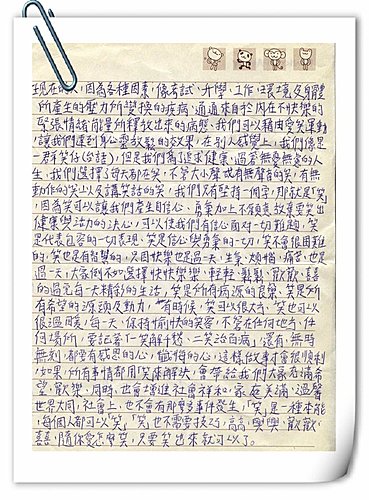 現在的人,因為各種因素,像考試、升學、工作、環境及身體
所產生的壓力所變換的疾病,通通來自於內在不快樂的
緊張情緒能量所釋放出來的病態,我們可以藉由愛笑運動
,讓我們達到身心靈放鬆的效果,在別人感覺上,我們像是
一群笑仔(台語),但是我們為了追求健康、過著無憂無慮的人
生,我們選擇了每天都在笑,不管大小聲或有無聲音的笑,有無
動作的笑以及講笑話的笑,我們只有堅持一個字,那就是「笑」
,因為笑可以讓我們產生自信心、勇氣加上不願意放棄要笑出
健康與治力的決心,可以使我們有信心面對一切難題,笑
是代表包容的一切表現,笑是信心與勇氣的一切,笑不會很困難
的,笑也是有智慧的,只因快樂也是過一天,生氣、煩惱、痛苦,也是
過一天,大家何不如選擇快快樂樂、輕輕、鬆鬆、歡歡、喜喜
的過完每一天精彩的生活,笑是所有病源的良藥,笑是所
有希望的源頭及動力,有時候,笑可以很大方,笑也可以
很溫暖,每一天,保持愉快的笑容,不管在任何地方,任
何場所,要記著「一笑解千愁、二笑治百病」,還有,無時
無刻,都要有感恩的心,歡愉的心,這樣做事才會很順利
,如果,所有事情都用「笑」來解決,會帶給我們大家充滿希
望,歡樂,同時,也會增進社會祥和、家庭美滿,溫馨
世界大同,社會上,也不會有那麼多事件發生,「笑」,是一種本能
,每個人都可以「笑」,「笑」也不需要技巧,高高、興興、歡歡、
喜喜,隨你愛怎麼笑,只要笑出來就可以了。